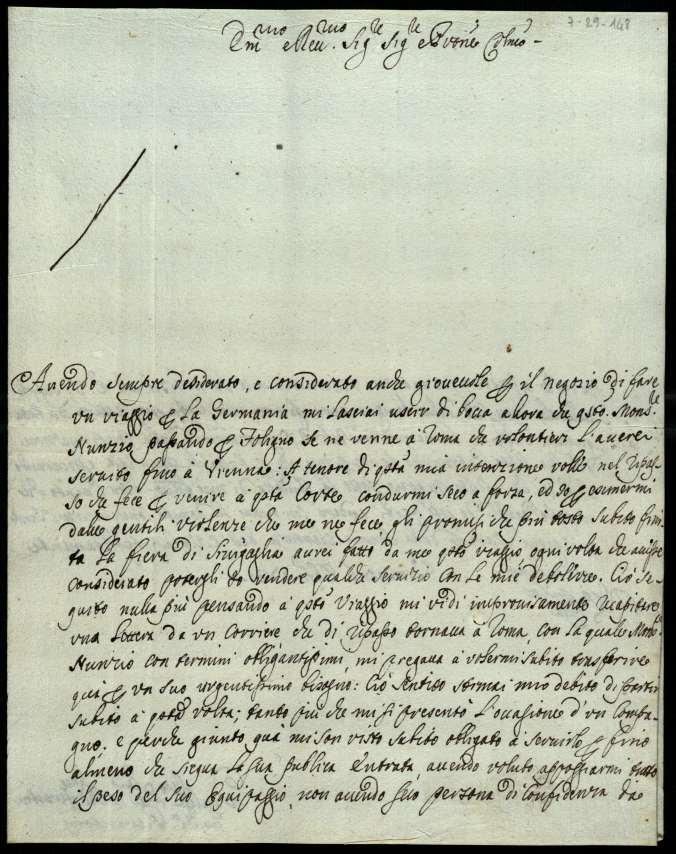 7-29-148
Emo e Reu. Sig.re Sig.re e Prone Colmo
Auendo sempre desiderato, e considerato anche gioueuole p il negozio di fare
un uiaggio p La Germania mi lasciai uscir di bocca allora che qsto Mons.re
Nunzio passando p Foligno se ne uenne à Roma che uolontieri L'auerei
seruito fino à Vienna: A tenore di qsta mia intenzione uolle nel ripas-
so che fece p uenire à qsta Corte condurmi seco a forza, ed Jo p esimermi
dalle gentili uiolenze che me ne fece gli promisi che più tosto subito fini-
ta La fiera di Sinigaglia aurei fatto da me qsto uiaggio ogni uolta che auesse
considerato potergli Jo rendere qualche seruizio con Le mie debolezze. Ciò se-
guito nulla più pensando a qsto Viaggio mi uidi improuisamente recapitare
una Lettera da un Corriere che di ripasso tornaua a Roma, con La quale Mons.re
Nunzio con termini obligantissimi, mi pregaua à uolermi subito transferire
quà p un suo urgentissimo bisogno: Ciò sentito stimai mio debito di partir
subito à qsta uolta; tanto più che mi si presentò L'occasione d'un Compa-
gno. e perche giunto quà mi son uisto subito obligato à seruirlo p fino
almeno che siegua La sua publica Entrata, auendo uoluto appoggiarmi tutto
il peso del suo Equipaggio, non auendo suo persona di Confidenza da